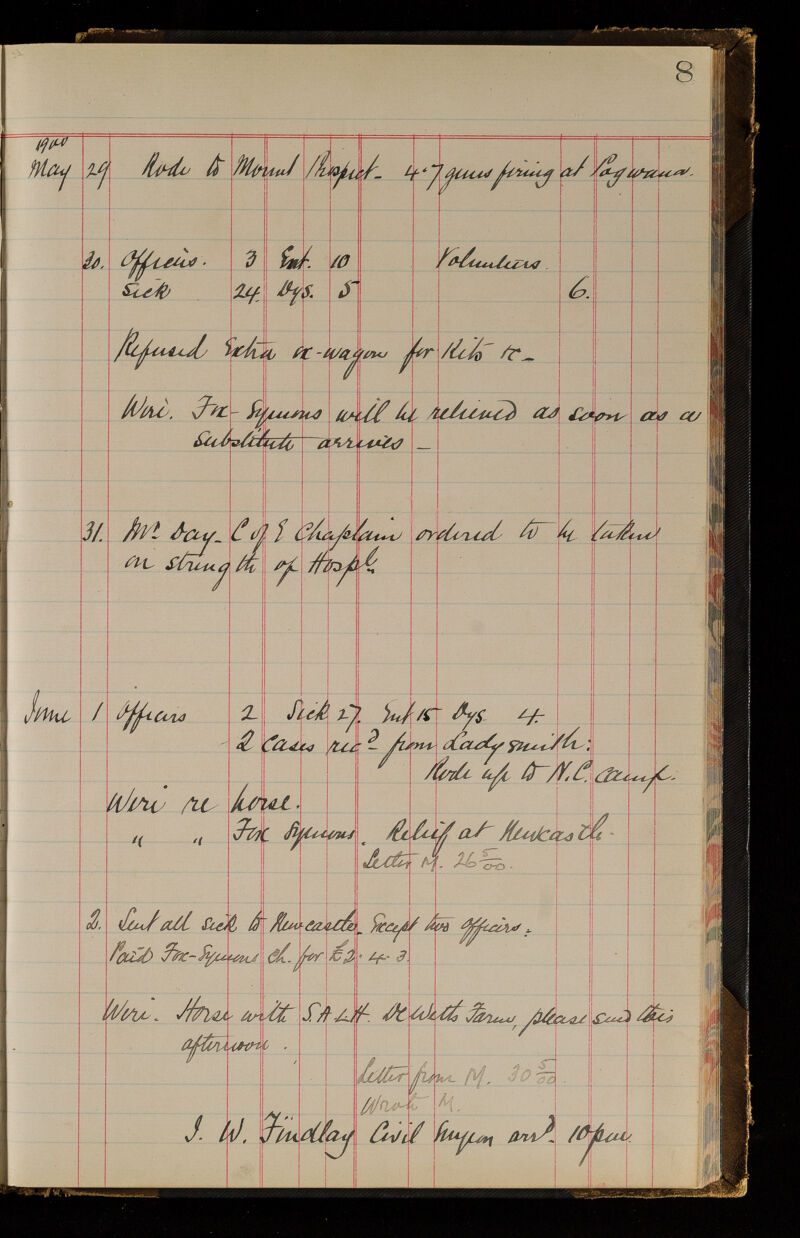 8
1900
May 29 Rode to Mount Prospect - 4.7 guns firing at Pogwana.
30. Officers. 3 Ent. 10 Volunteers.
Sick 24. Dys. 5 6.
Refused Extra ox-wagon for Kits &c -
Wire. Fox-Symons will be relieved as soon as a
substitute arrives -
31. Mr. Day - C of E Chaplain ordered to be taken
on strength of Hospl.
June 1 Officers 2 Sick 27. Ent 15 Dys. 4.
2 Cases recd from Ladysmith:
Rode up to N.C. Camp.
Wire re horse.
" " Fox Symons. Relief at Newcastle.
Letter M. 26 5/00.
2. Sent all sick to Newcastle. Except two Officers.
Paid Fox-Symons ch. for £2.4.3.
Wire. Horse with S.A.L.H. De Wetts Farm, please send this
afternoon.
Letter from M. 30 5/00.
Wrote M.
J. W. Findlay Civil Surgeon arrd. 10 pm.